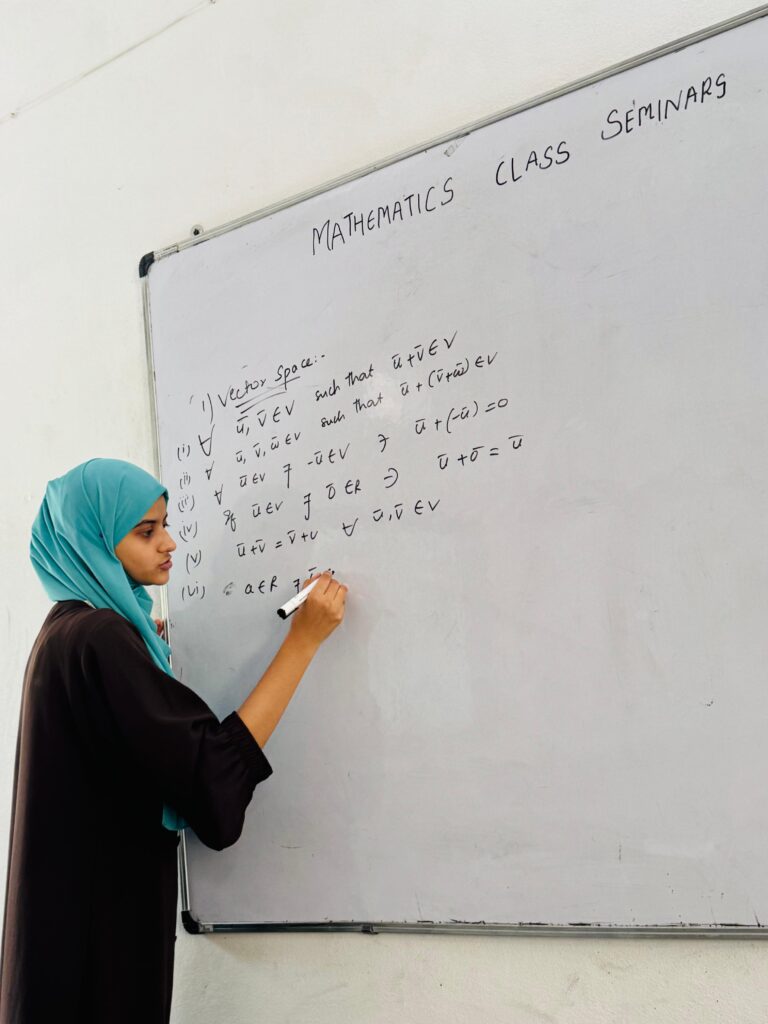 MATHEMATICS CLASS SEMINARS
1) Vector Space:-
(i) ∀ ū, v̄ ∈ V such that ū + v̄ ∈ V
(ii) ∀ ū, v̄, w̄ ∈ V such that ū + (v̄ + w̄) ∈ V
(iii) ∀ ū ∈ V ∃ -ū ∈ V ∃ ū + (-ū) = 0
(iv) If ū ∈ V ∃ ō ∈ R ∋ ū + ō = ū
(v) ū + v̄ = v̄ + u ∀ ū, v̄ ∈ V
(vi) a ∈ R ∃